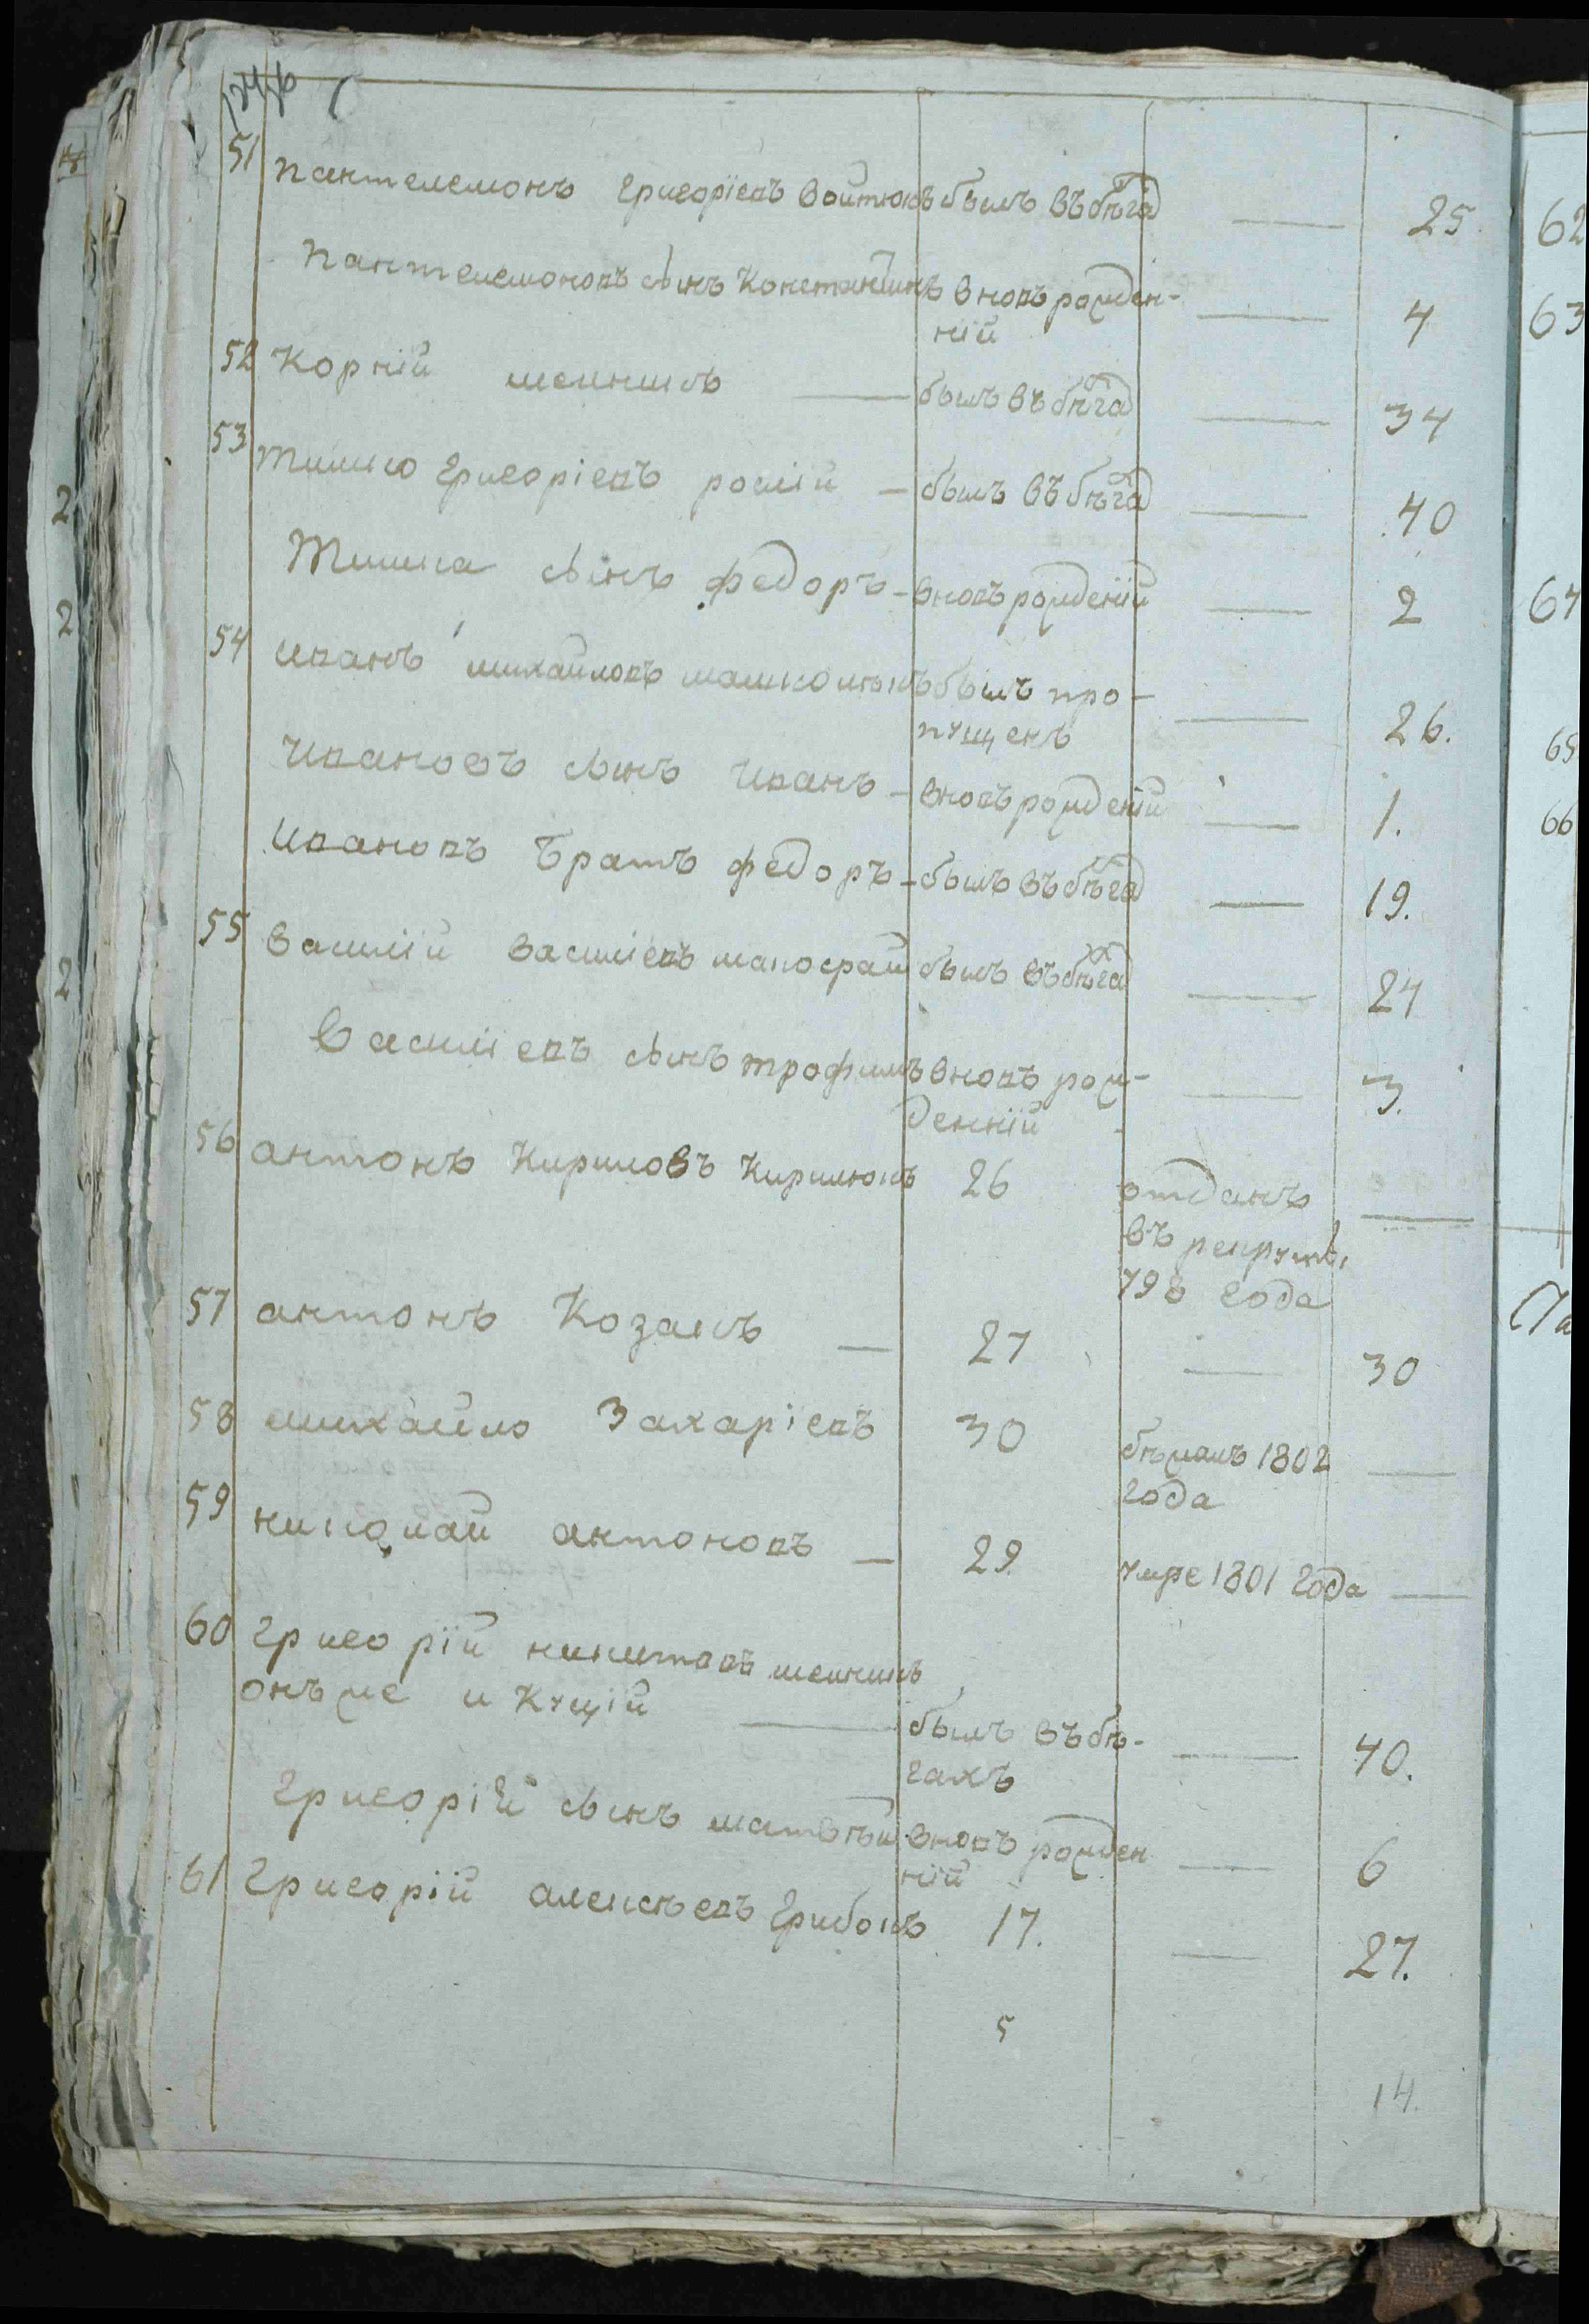 51 Пантелемонъ Григоріевъ Войтюкъ былъ въ бѣгах — 25
Пантелемоновъ сынъ Констанtинъ вновь рожден- — 4
ній
52 Корній мельникъ — былъ въ бѣгах — 34
53 Тишко Григоріевъ — былъ въ бѣгах — 40
Тишка сынъ Федоръ - вновь рожденій — 2
54 Иванъ Михайловъ былъ про- — 26.
пущенъ
Ивановъ сынъ Иванъ - вновь рожденій — 1.
Ивановъ Братъ Федоръ - былъ въ бѣгах — 19.
55 Василій Василіевъ былъ въ бѣгах — 24
Василіевъ сынъ Трофимъ вновь рож- — 3.
денній
56 Антонъ Кириловъ Кирилюкъ 26 отданъ —
въ рекруты
798 года
57 Антонъ Козакъ — 27 — 30
58 Михайло Захаріевъ 30 бѣжалъ 1802 —
года
59 Николай Антоновъ — 29. умре 1801 года —
60 Григорій Никитовъ мельникъ
онъ же и Куцій — былъ въ бѣ- — 40.
гахъ
Григорій сынъ Матвѣй вновь рожден — 6
ній
61 Григорій Алексѣевъ Грибокъ 17. — 27.
5
14.
62
63
64
65
66
2
2
2